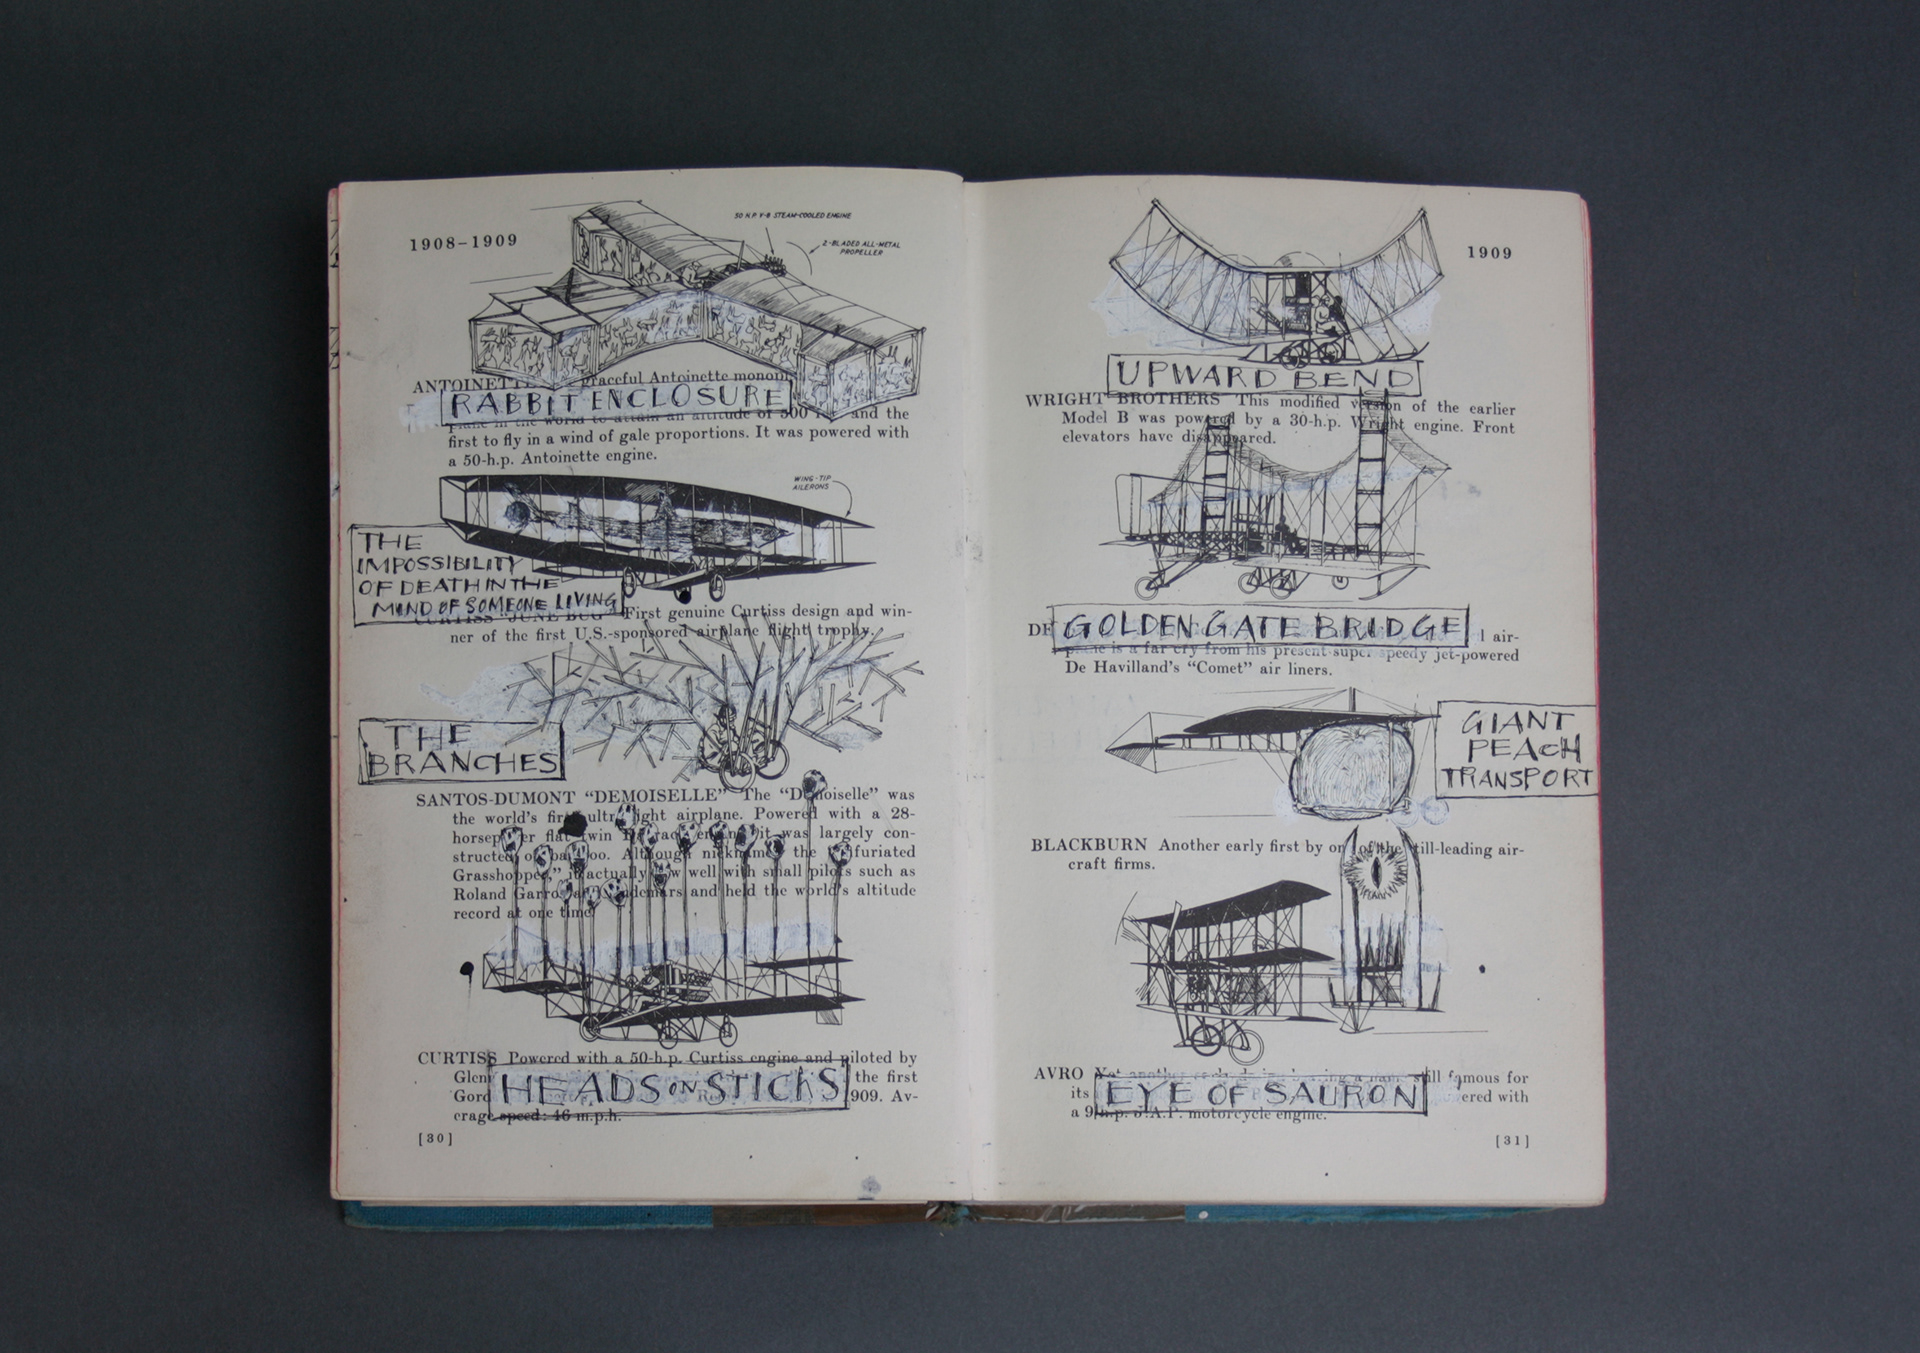 1908–1909
50 H.P. V-8 STEAM-COOLED ENGINE
2-BLADED ALL-METAL
PROPELLER
ANTOINETTE graceful Antoinette
RABBIT ENCLOSURE
plane in the world to attain an altitude of 500 and the
first to fly in a wind of gale proportions. It was powered with
a 50-h.p. Antoinette engine.
WING-TIP
AILERONS
THE
IMPOSSIBILITY
OF DEATH IN THE
MIND OF SOMEONE LIVING
CURTISS "JUNE BUG" First genuine Curtiss design and win-
ner of the first U.S.-sponsored airplane flight trophy.
THE
BRANCHES
SANTOS-DUMONT "DEMOISELLE" The "Demoiselle" was
the world's first ultra light airplane. Powered with a 28-
horsepower flat twin engine it was largely con-
structed of bamboo. Although nicknamed the "Infuriated
Grasshopper," it actually flew well with small pilots such as
Roland Garros and Audemars and held the world's altitude
record at one time.
CURTISS Powered with a 50-h.p. Curtiss engine and piloted by
Glenn the first
HEADS ON STICKS
Gord 1909. Av-
erage speed: 46 m.p.h.
[30]
1909
UPWARD BEND
WRIGHT BROTHERS This modified version of the earlier
Model B was powered by a 30-h.p. Wright engine. Front
elevators have disappeared.
DE air-
GOLDEN GATE BRIDGE
plane is a far cry from his present super speedy jet-powered
De Havilland's "Comet" air liners.
GIANT
PEACH
TRANSPORT
BLACKBURN Another early first by one of the still-leading air-
craft firms.
AVRO Yet another early design bearing a name still famous for
its ered with
EYE OF SAURON
a 9-h.p. J.A.P. motorcycle engine.
[31]